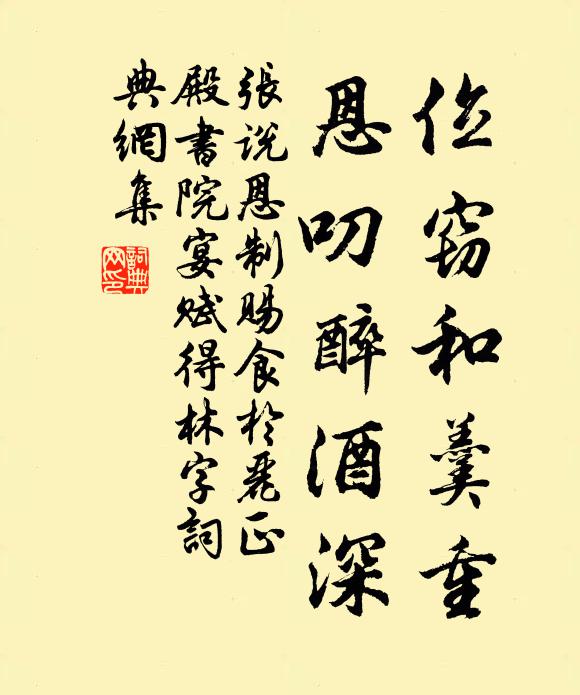 位窃和羹重
恩叨醉酒深
張説恩制賜食於麗正
殿書院宴賦得林字詞
典網集
詞典
网印